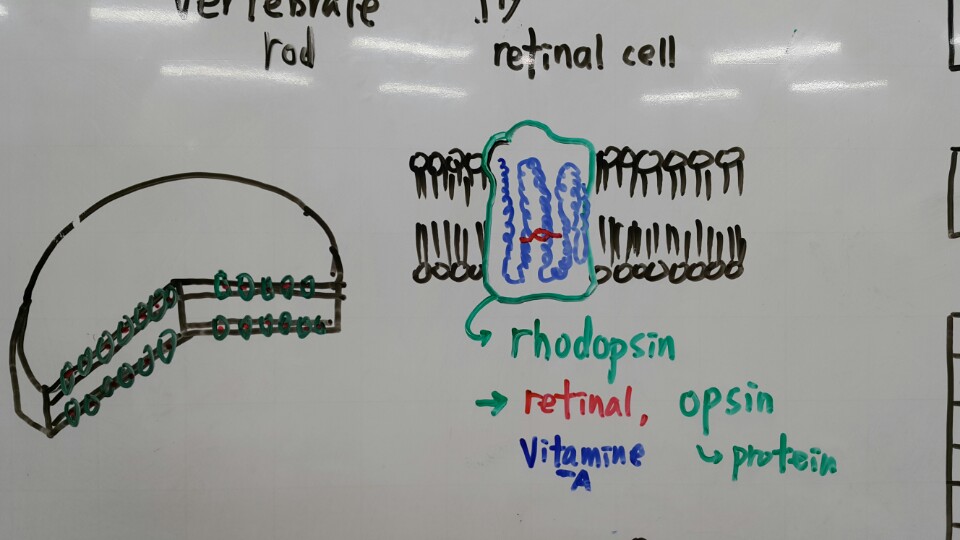 vertebrate
rod
retinal cell
rhodopsin
→ retinal, opsin
Vitamine ↳ protein
-A